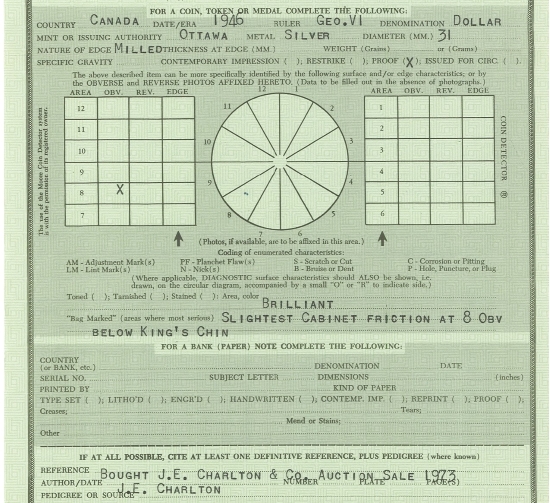 FOR A COIN, TOKEN OR MEDAL COMPLETE THE FOLLOWING:
COUNTRY CANADA DATE/ERA 1946 RULER GEO.VI DENOMINATION DOLLAR
MINT OR ISSUING AUTHORITY OTTAWA METAL SILVER DIAMETER (MM.) 31
NATURE OF EDGE MILLED THICKNESS AT EDGE (MM) WEIGHT (Grains) or (Grams)
SPECIFIC GRAVITY CONTEMPORARY IMPRESSION ( ); RESTRIKE ( ); PROOF (X); ISSUED FOR CIRC. ( ).
The above described item can be more specifically identified by the following surface and/or edge characteristics; or by
the OBVERSE and REVERSE PHOTOS AFFIXED HERETO. (Data to be filled out in the absence of photographs.)
AREA OBV. REV. EDGE
12
11
10
9
8 X
7
The use of the Moore Coin Detector system
is with the permission of its registered owner.
12 1 2 3 4 5 6 7 8 9 10 11
AREA OBV. REV. EDGE
1
2
3
4
5
6
COIN DETECTOR ®
(Photos, if available, are to be affixed in this area.)
Coding of enumerated characteristics:
AM - Adjustment Mark(s) PF - Planchet Flaw(s) S - Scratch or Cut C - Corrosion or Pitting
LM - Lint Mark(s) N - Nick(s) B - Bruise or Dent P - Hole, Puncture, or Plug
(Where applicable, DIAGNOSTIC surface characteristics should ALSO be shown, i.e.
drawn, on the circular diagram, accompanied by a small "O" or "R" to indicate side.)
Toned ( ); Tarnished ( ); Stained ( ): Area, color BRILLIANT
"Bag Marked" (areas where most serious) SLIGHTEST CABINET FRICTION AT 8 OBV
BELOW KING'S CHIN
FOR A BANK (PAPER) NOTE COMPLETE THE FOLLOWING:
COUNTRY
(or BANK, etc.) DENOMINATION DATE
SERIAL NO. SUBJECT LETTER DIMENSIONS (inches)
PRINTED BY KIND OF PAPER
TYPE SET ( ); LITHO'D ( ); ENGR'D ( ); HANDWRITTEN ( ); CONTEMP. IMP. ( ); REPRINT ( ); PROOF ( );
Creases; Tears;
Mend or Stains;
Other
IF AT ALL POSSIBLE, CITE AT LEAST ONE DEFINITIVE REFERENCE, PLUS PEDIGREE (where known)
REFERENCE BOUGHT J.E. CHARLTON & CO. AUCTION SALE 1973
AUTHOR/DATE NUMBER PLATE PAGE(S)
PEDIGREE OR SOURCE J.E. CHARLTON